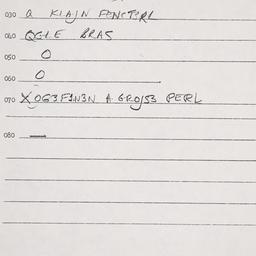 030 a KIAJN FENCTERL
040 QGLE BRAS
050 O
060 O
070 XOG3F1N3N A GROJ53 PERL
080 —